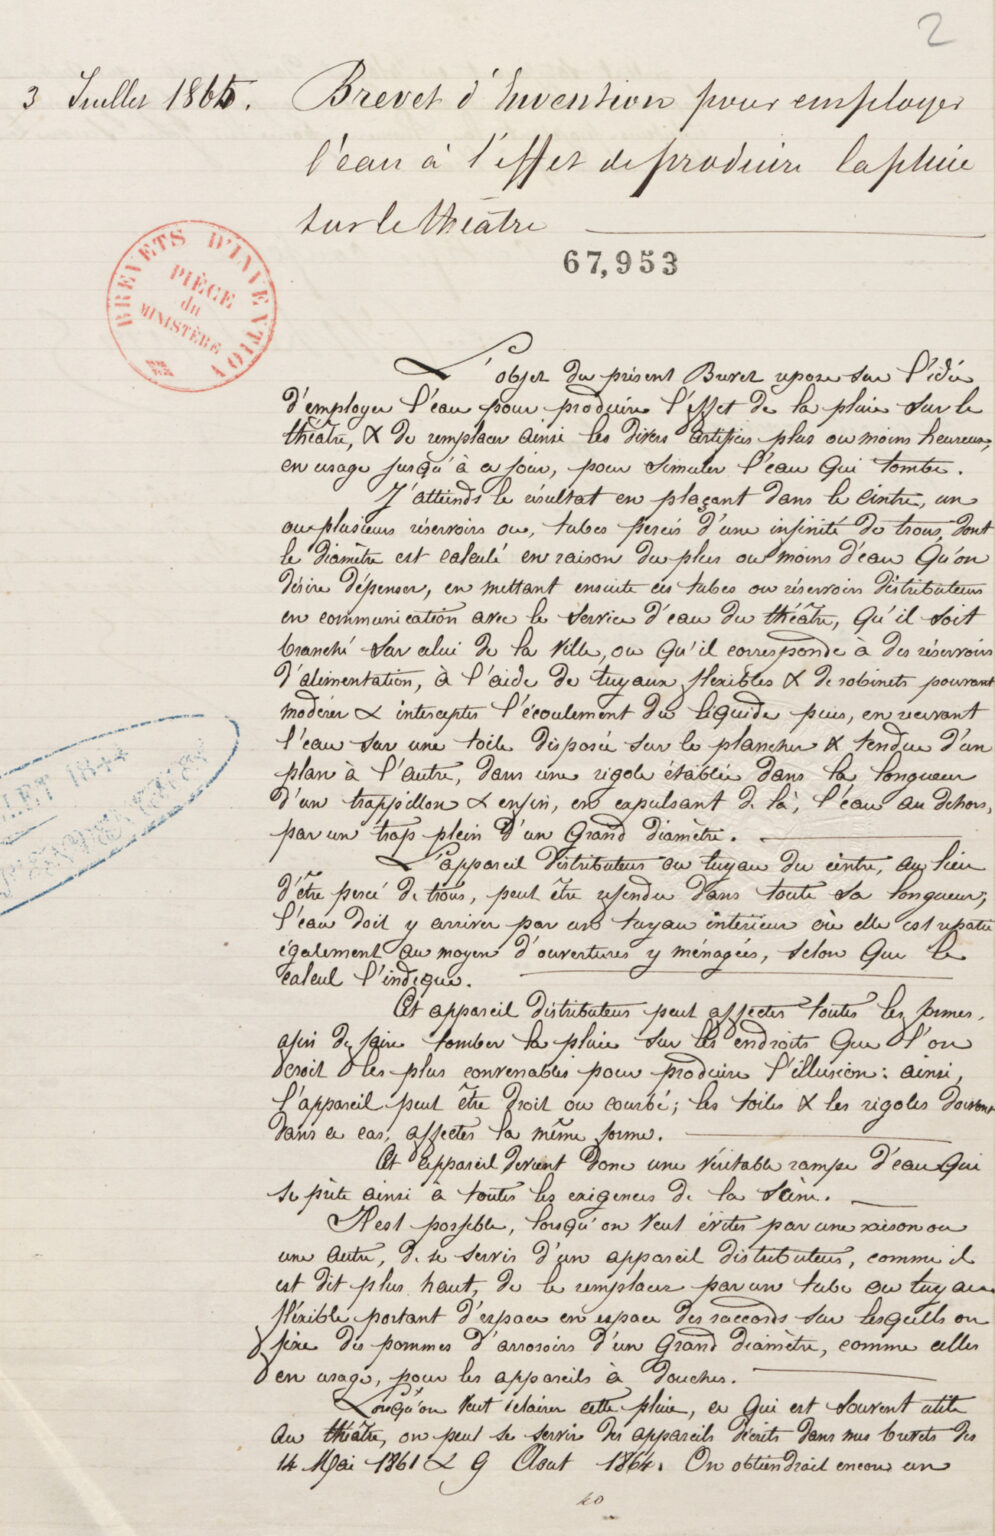 2
3 Juillet 1865. Brevet d'Invention pour employer
l'eau à l'effet de produire la pluie
sur le théâtre
67,953
BREVETS D'INVENTION
PIÈCE
du
MINISTÈRE
L'objet du présent Brevet repose sur l'idée
d'employer l'eau pour produire l'effet de la pluie sur le
théâtre, & de remplacer ainsi les divers artifices plus ou moins heureux,
en usage jusqu'à ce jour, pour simuler l'eau qui tombe.
J'atteinds le résultat en plaçant dans le cintre, un
ou plusieurs réservoirs ou, tubes percés d'une infinité de trous, dont
le diamètre est calculé en raison du plus ou moins d'eau qu'on
désire dépenser, en mettant ensuite ces tubes ou réservoirs distributeurs
en communication avec le service d'eau du théâtre, qu'il soit
branché sur celui de la ville, ou qu'il corresponde à des réservoirs
d'alimentation, à l'aide de tuyaux flexibles & de robinets pouvant
modérer & intercepter l'écoulement du liquide puis, en recevant
l'eau sur une toile disposée sur le plancher & tendue d'un
plan à l'autre, dans une rigole établie dans la longueur
d'un trappillon & enfin, en expulsant de là, l'eau au dehors,
par un trop plein d'un grand diamètre.
L'appareil distributeur ou tuyau du cintre, au lieu
d'être percé de trous, peut être refendu dans toute sa longueur;
l'eau doit y arriver par un tuyau intérieur où elle est répartie
également au moyen d'ouvertures y ménagées, selon que le
calcul l'indique.
Cet appareil distributeur peut affecter toutes les formes,
afin de faire tomber la pluie sur les endroits que l'on
croit les plus convenables pour produire l'illusion: ainsi,
l'appareil peut être droit ou courbé; les toiles & les rigoles doivent
dans ce cas, affecter la même forme.
Cet appareil devient donc une véritable rampe d'eau qui
se prête ainsi à toutes les exigences de la scène.
Il est possible, lorsqu'on veut éviter par une raison ou
une autre, de se servir d'un appareil distributeur, comme il
est dit plus haut, de le remplacer par un tube ou tuyau
fléxible portant d'espace en espace des raccords sur lesquels on
fixe des pommes d'arrosoirs d'un grand diamètre, comme celles
en usage, pour les appareils à douches.
Lorsqu'on veut éclairer cette pluie, ce qui est souvent utile
au théâtre, on peut se servir des appareils décrits dans mes brevets des
14 Mai 1861 & 9 Aout 1864. On obtiendrait encore un